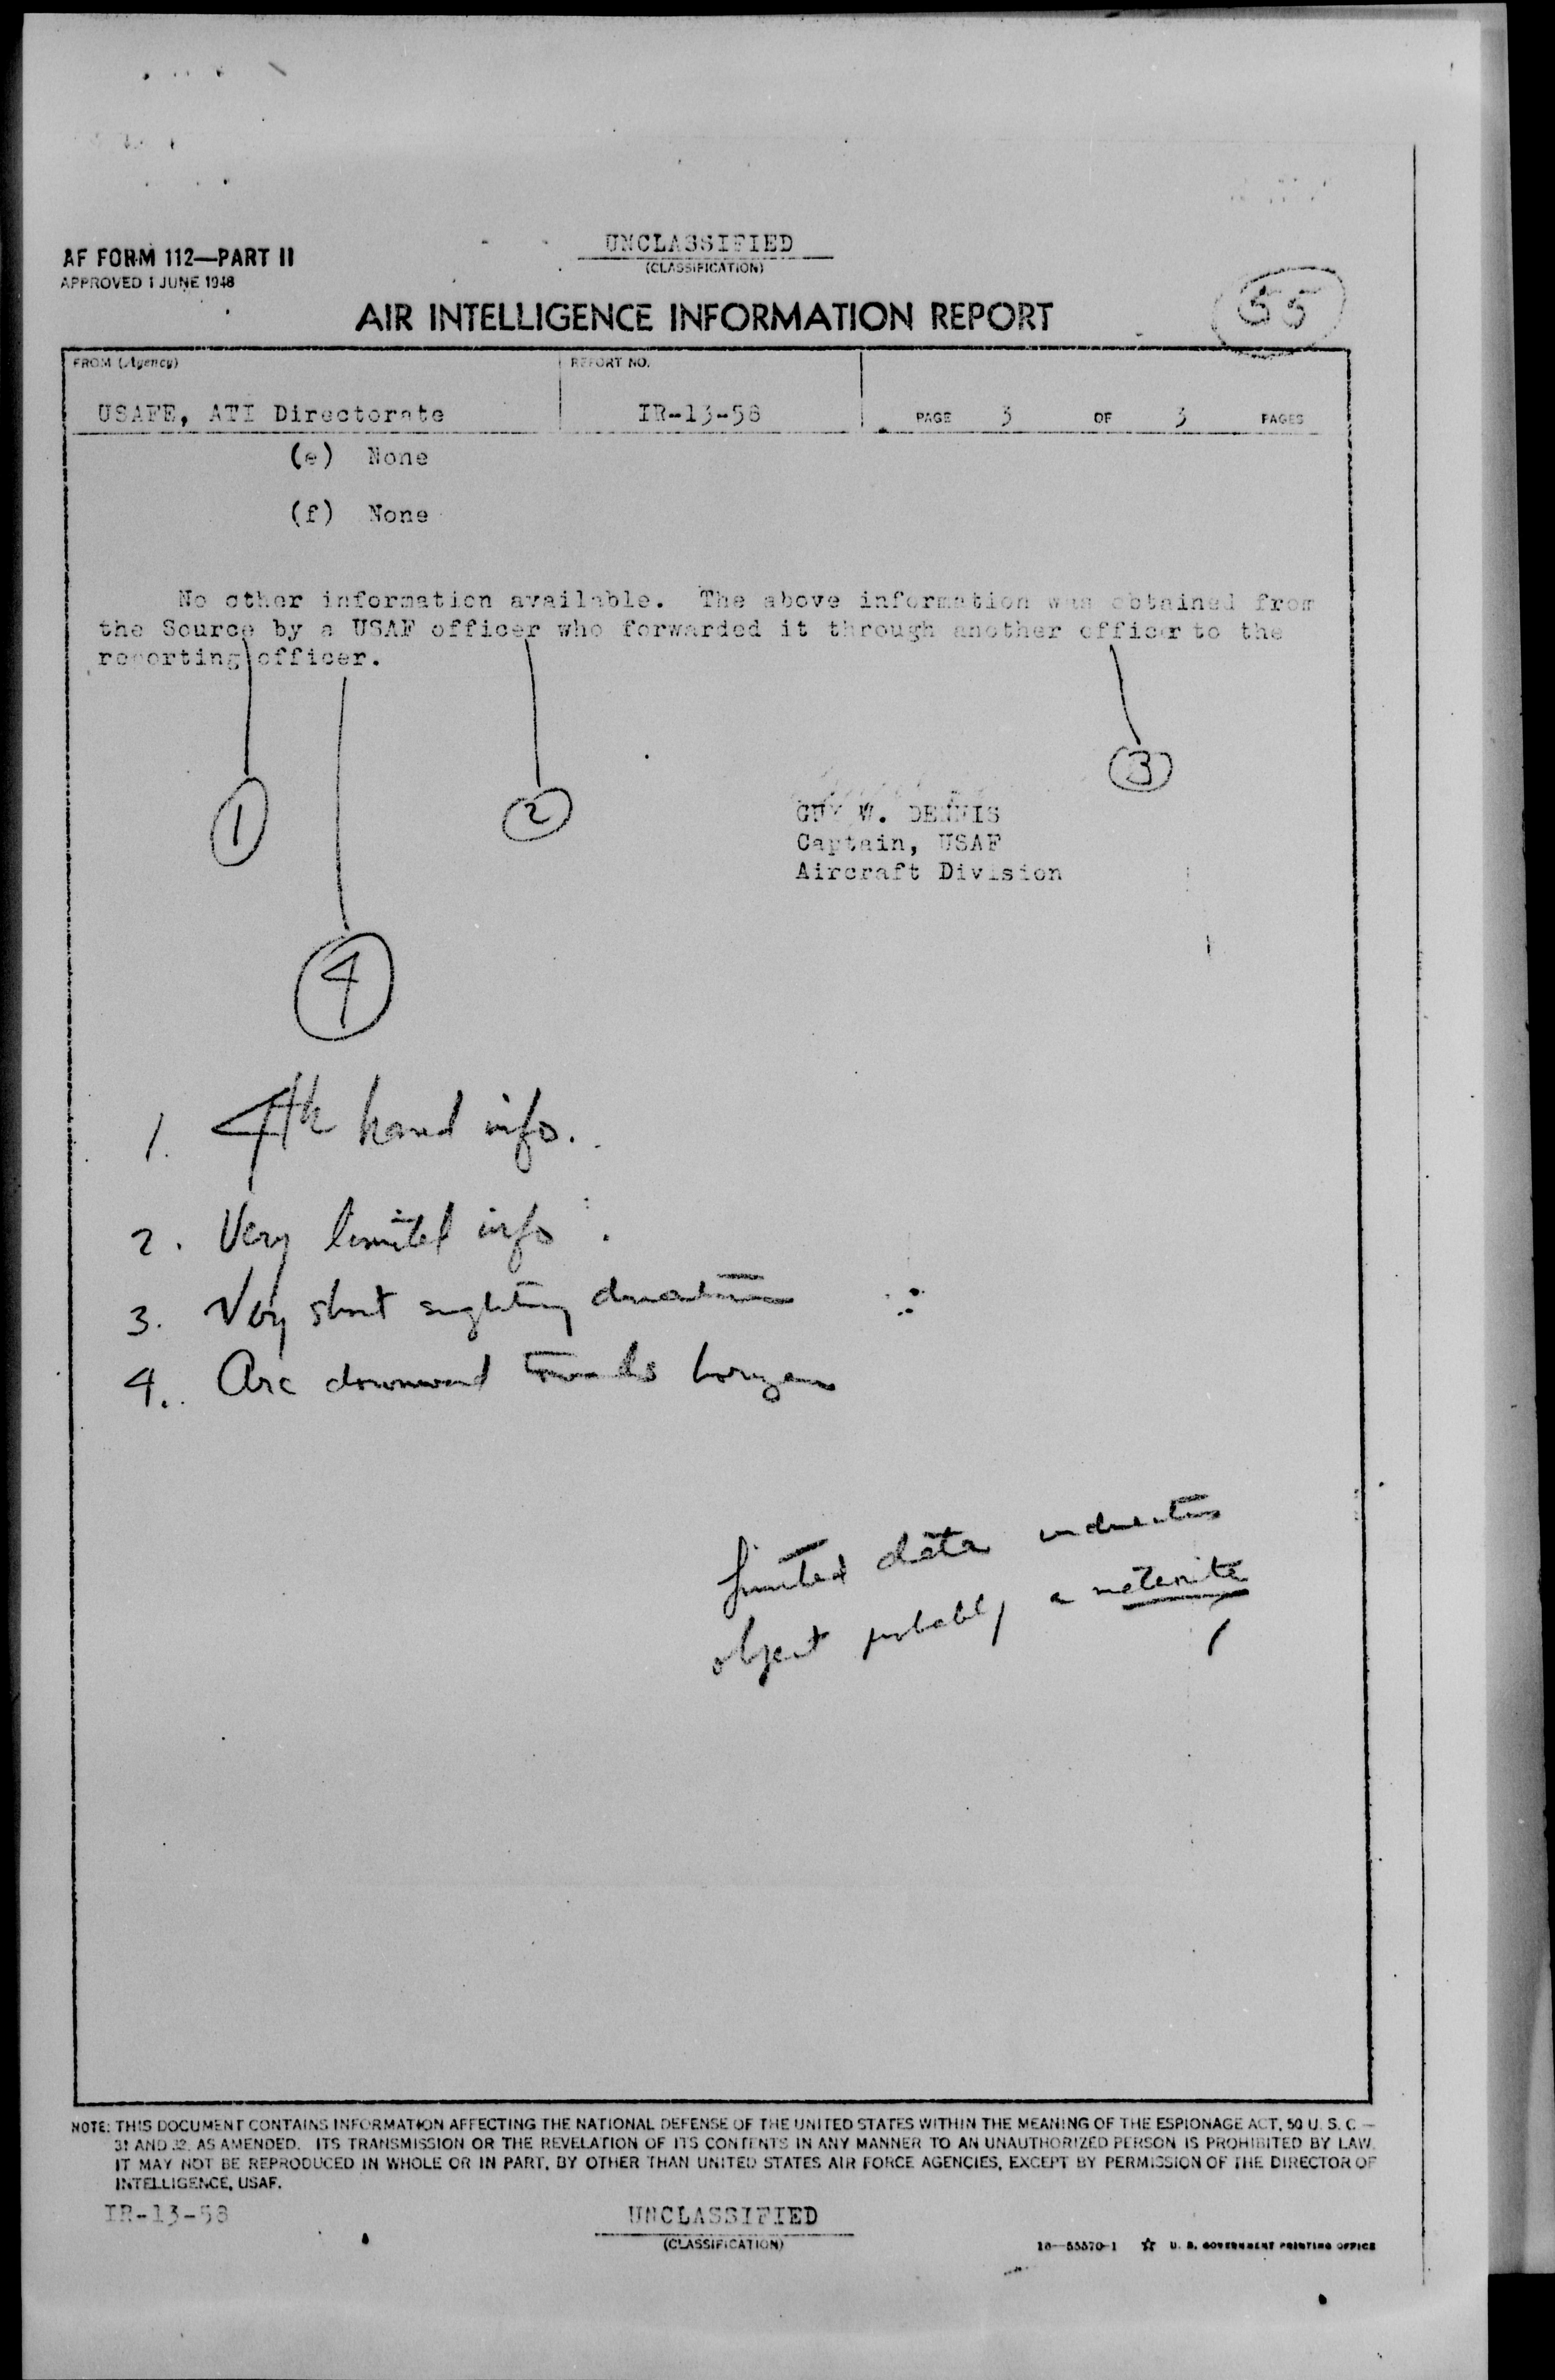 AF FORM 112—PART II
APPROVED 1 JUNE 1948
UNCLASSIFIED
(CLASSIFICATION)
AIR INTELLIGENCE INFORMATION REPORT
55
FROM (Agency)
REPORT NO.
USAFE, ATI Directorate
IR-13-58
PAGE 3 OF 3 PAGES
(e) None
(f) None
No other information available. The above information was obtained from
the Source by a USAF officer who forwarded it through another officer to the
reporting officer.
3
1
2
GUY W. DENNIS
Captain, USAF
Aircraft Division
4
1. 4th hand info.
2. Very limited info.
3. Very short sighting duration
4. Arc downward towards horizon
Limited data indicates
object probably a meteorite
NOTE: THIS DOCUMENT CONTAINS INFORMATION AFFECTING THE NATIONAL DEFENSE OF THE UNITED STATES WITHIN THE MEANING OF THE ESPIONAGE ACT, 50 U. S. C.—
31 AND 32, AS AMENDED. ITS TRANSMISSION OR THE REVELATION OF ITS CONTENTS IN ANY MANNER TO AN UNAUTHORIZED PERSON IS PROHIBITED BY LAW.
IT MAY NOT BE REPRODUCED IN WHOLE OR IN PART, BY OTHER THAN UNITED STATES AIR FORCE AGENCIES, EXCEPT BY PERMISSION OF THE DIRECTOR OF
INTELLIGENCE, USAF.
IR-13-58
UNCLASSIFIED
(CLASSIFICATION)
16—55570-1 ☆ U. S. GOVERNMENT PRINTING OFFICE